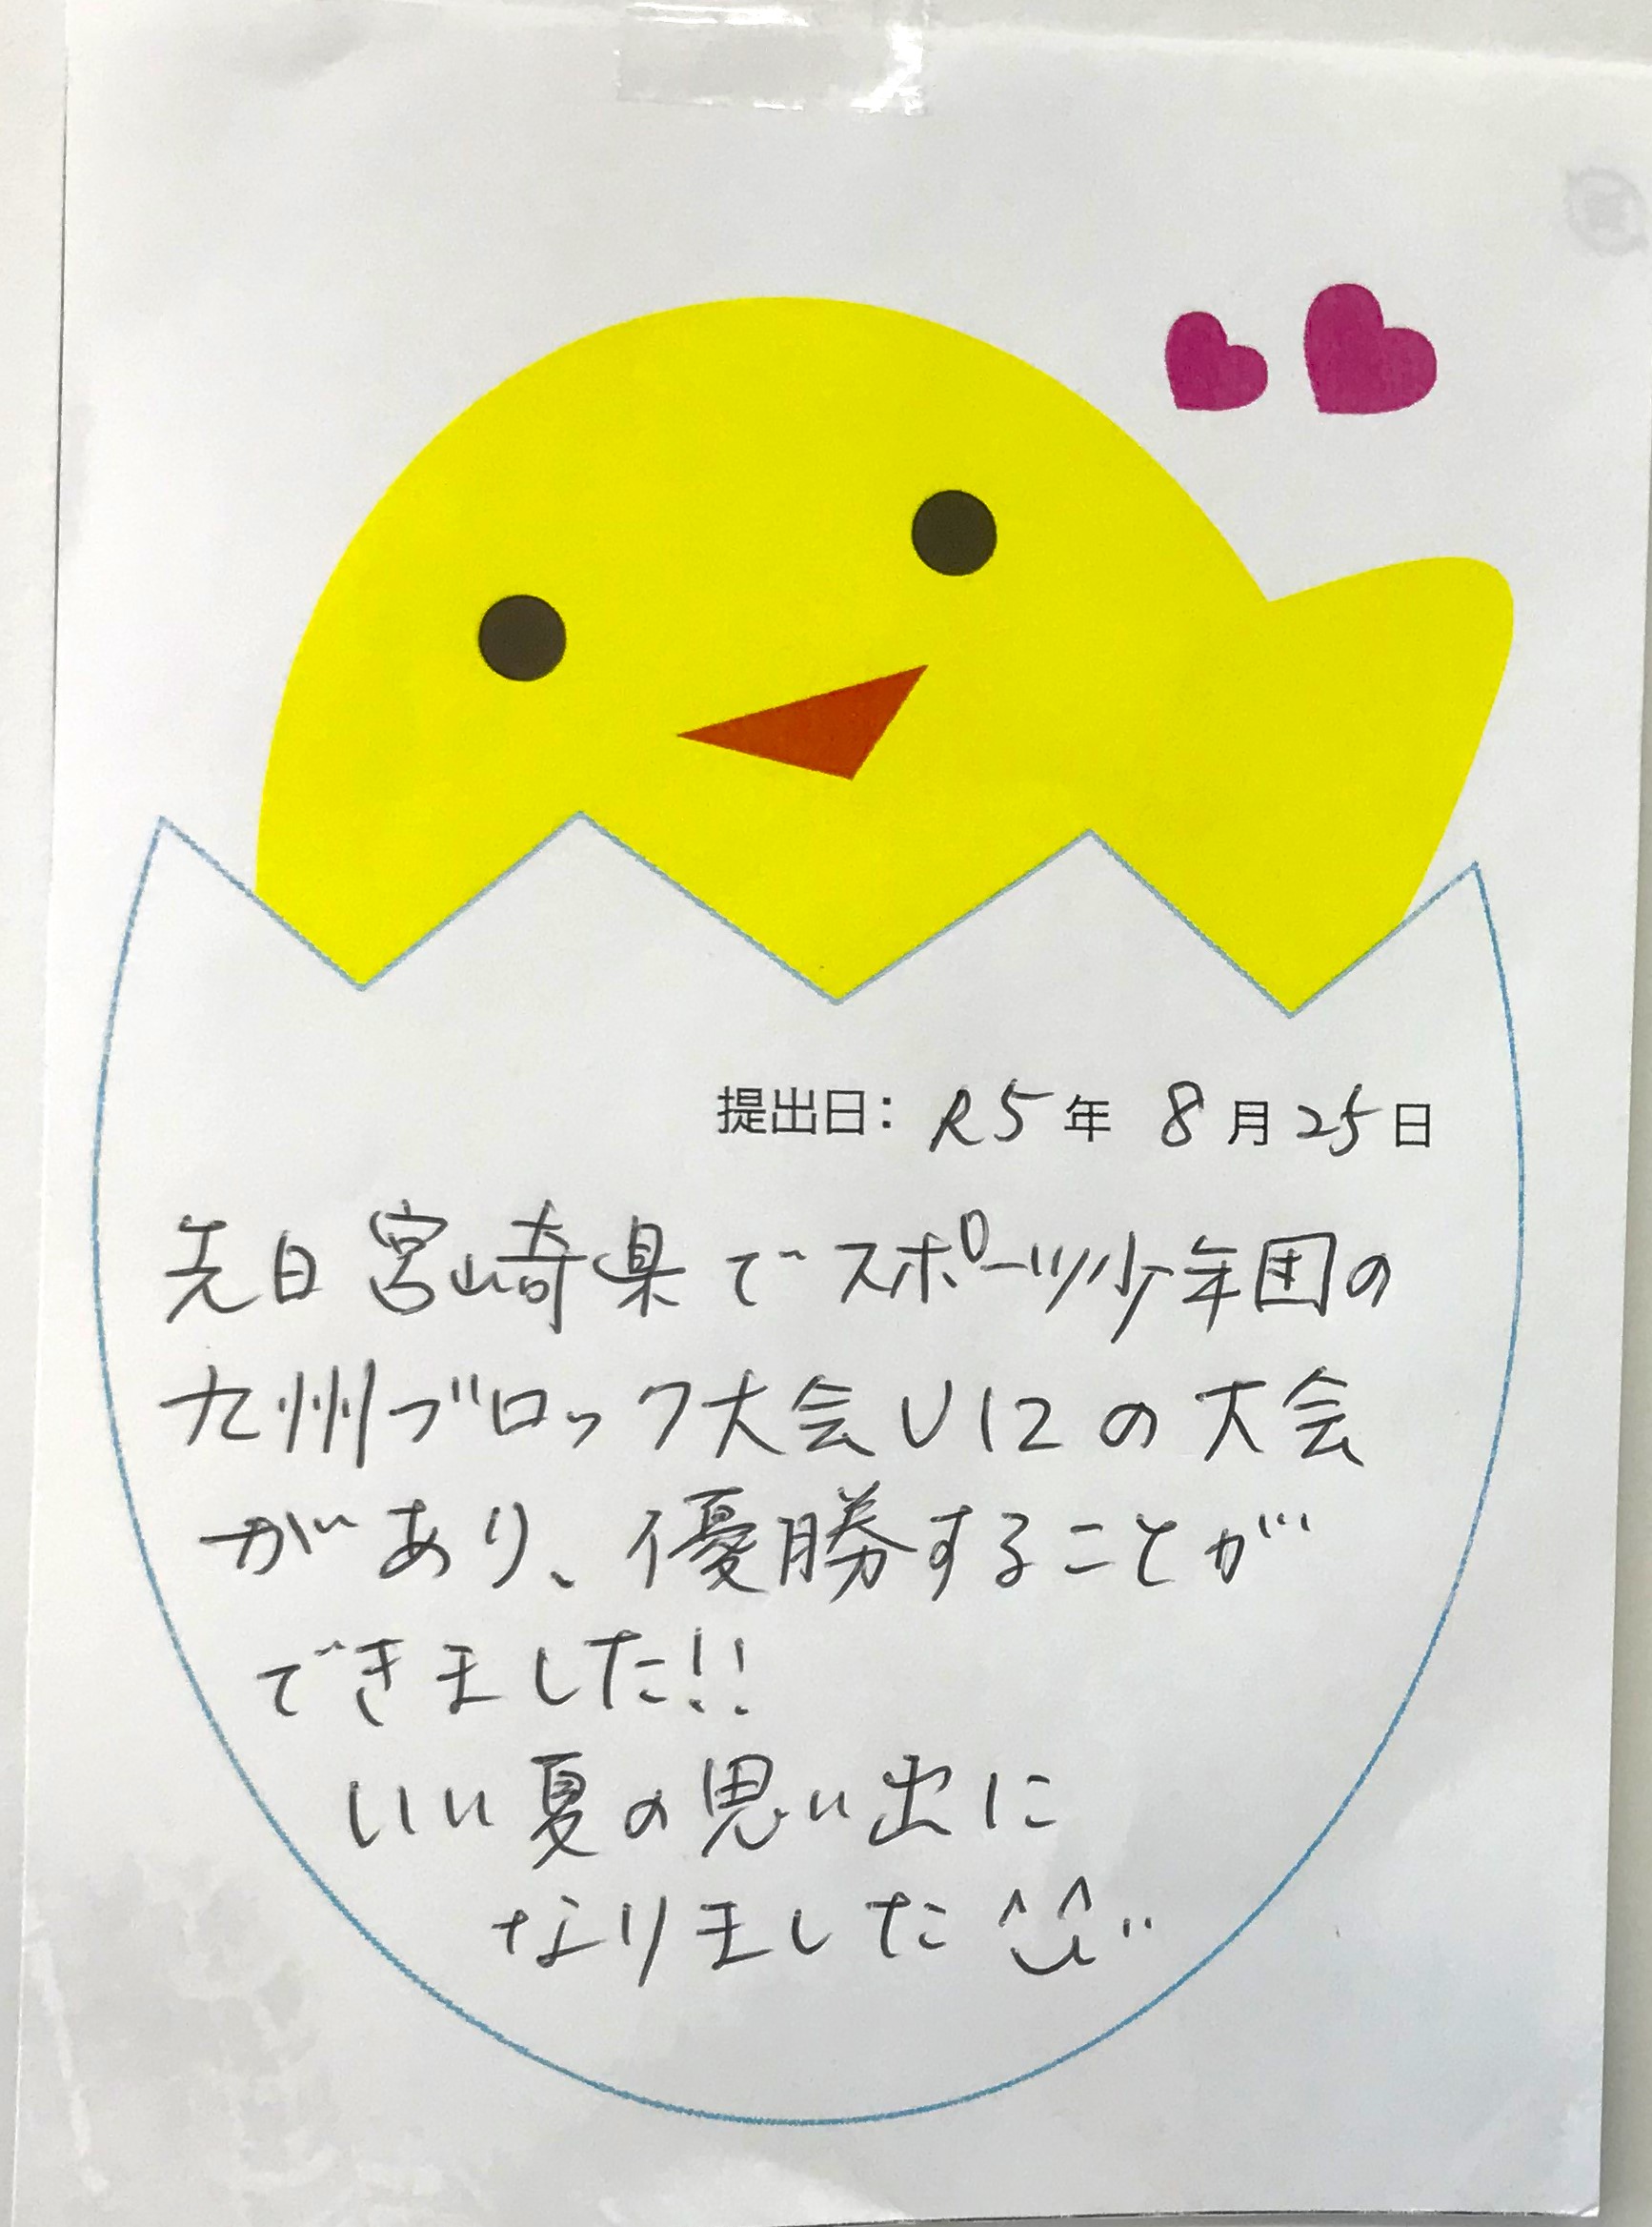 提出日：R5年 8月25日
先日 宮崎県でスポーツ少年団の
九州ブロック大会U12の大会
があり、優勝することが
できました!!
いい夏の思い出に
なりました^^